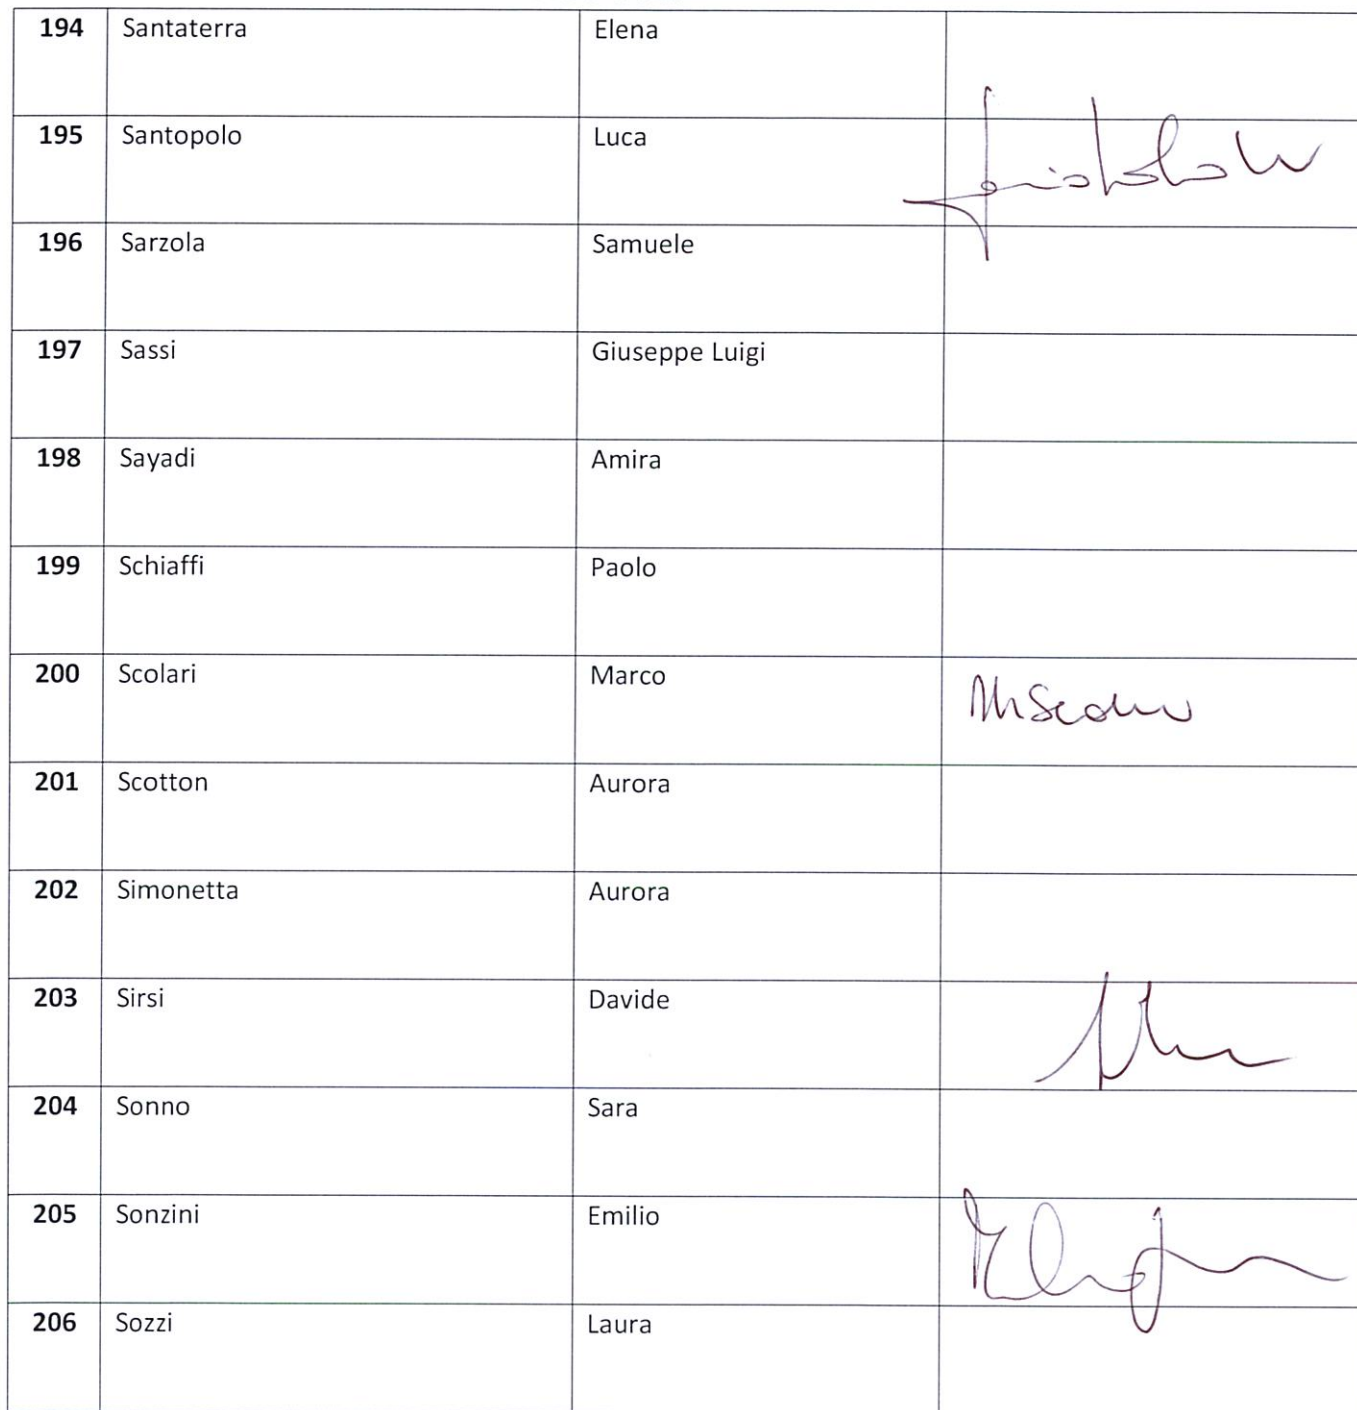 194 Santaterra Elena
195 Santopolo Luca
196 Sarzola Samuele
197 Sassi Giuseppe Luigi
198 Sayadi Amira
199 Schiaffi Paolo
200 Scolari Marco
201 Scotton Aurora
202 Simonetta Aurora
203 Sirsi Davide
204 Sonno Sara
205 Sonzini Emilio
206 Sozzi Laura